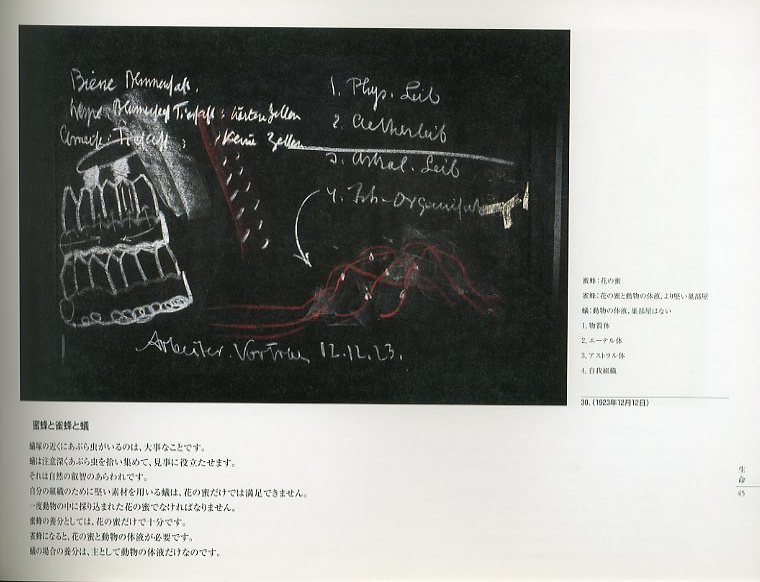 Biene Blumensaft.
Wespe Blumensaft Tiersaft: härtere Zellen
Ameise: Tiersaft, : keine Zellen
1. Phys. Leib
2. Aetherleib
3. Astral. Leib
4. Ich-Organisat
Arbeiter. Vortrag 12.12.23.
蜜蜂：花の蜜
雀蜂：花の蜜と動物の体液、より堅い巣部屋
蟻：動物の体液、巣部屋はない
1. 物質体
2. エーテル体
3. アストラル体
4. 自我組織
30.（1923年12月12日）
蜜蜂と雀蜂と蟻
蟻塚の近くにあぶら虫がいるのは、大事なことです。
蟻は注意深くあぶら虫を拾い集めて、見事に役立たせます。
それは自然の叡智のあらわれです。
自分の組織のために堅い素材を用いる蟻は、花の蜜だけでは満足できません。
一度動物の中に採り込まれた花の蜜でなければなりません。
蜜蜂の養分としては、花の蜜だけで十分です。
雀蜂になると、花の蜜と動物の体液が必要です。
蟻の場合の養分は、主として動物の体液だけなのです。
生命
45